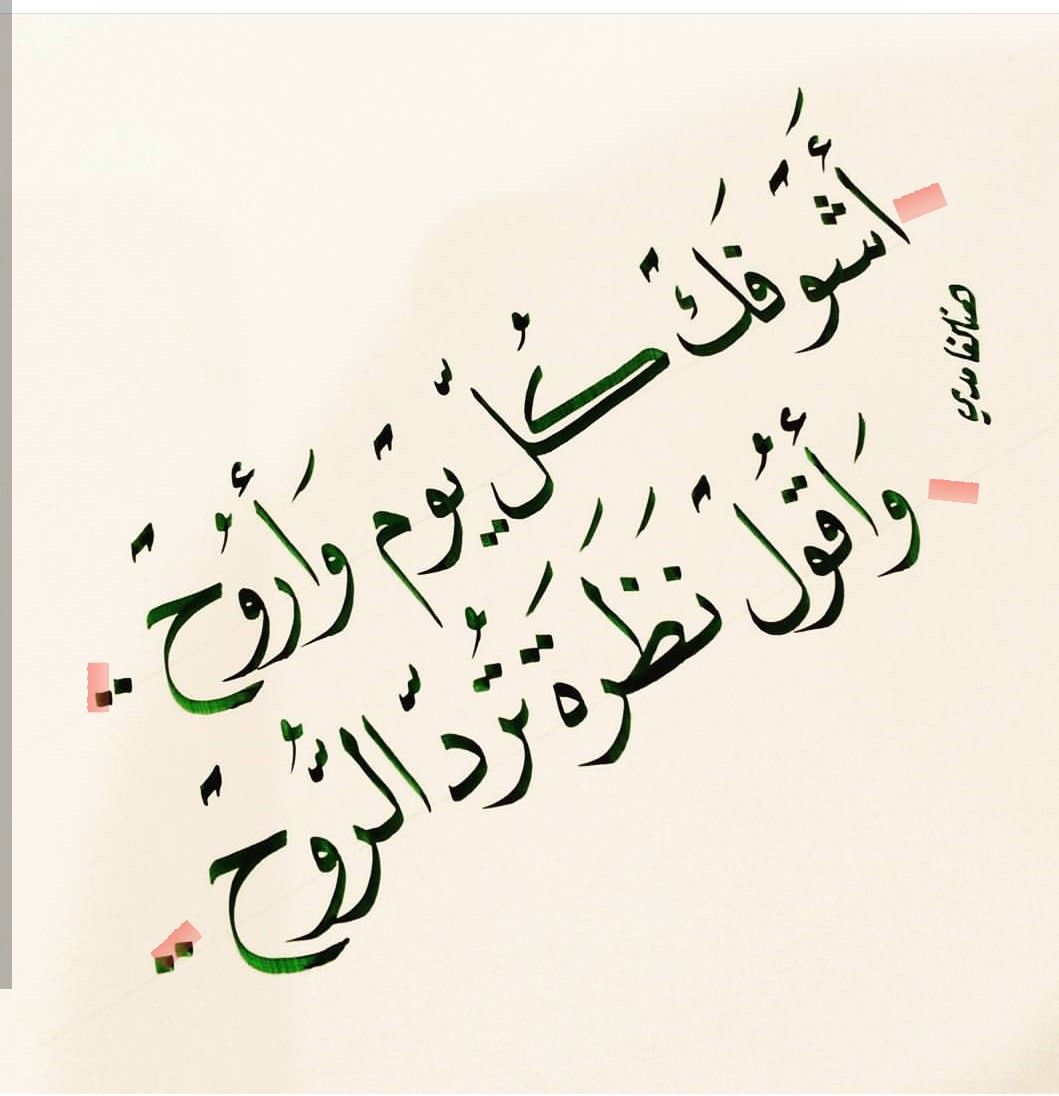 أَشوفَك كُلّ يوم وَأَروح ..
وَأَقول نَظْرَه تَرُدّ الرّوح ..
هنا الغامدي